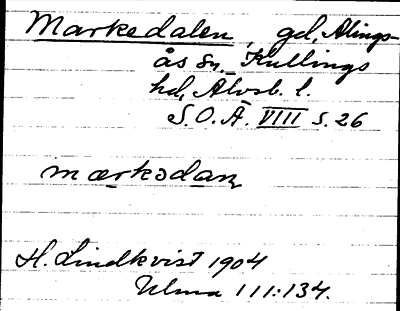 Markedalen, gd, Alings-
ås sn, Kullings
hd, Älvsb. l.
S.O.Ä. VIII s. 26
mærkədaṉ
H. Lindkvist 1904
Ulma 111:134.